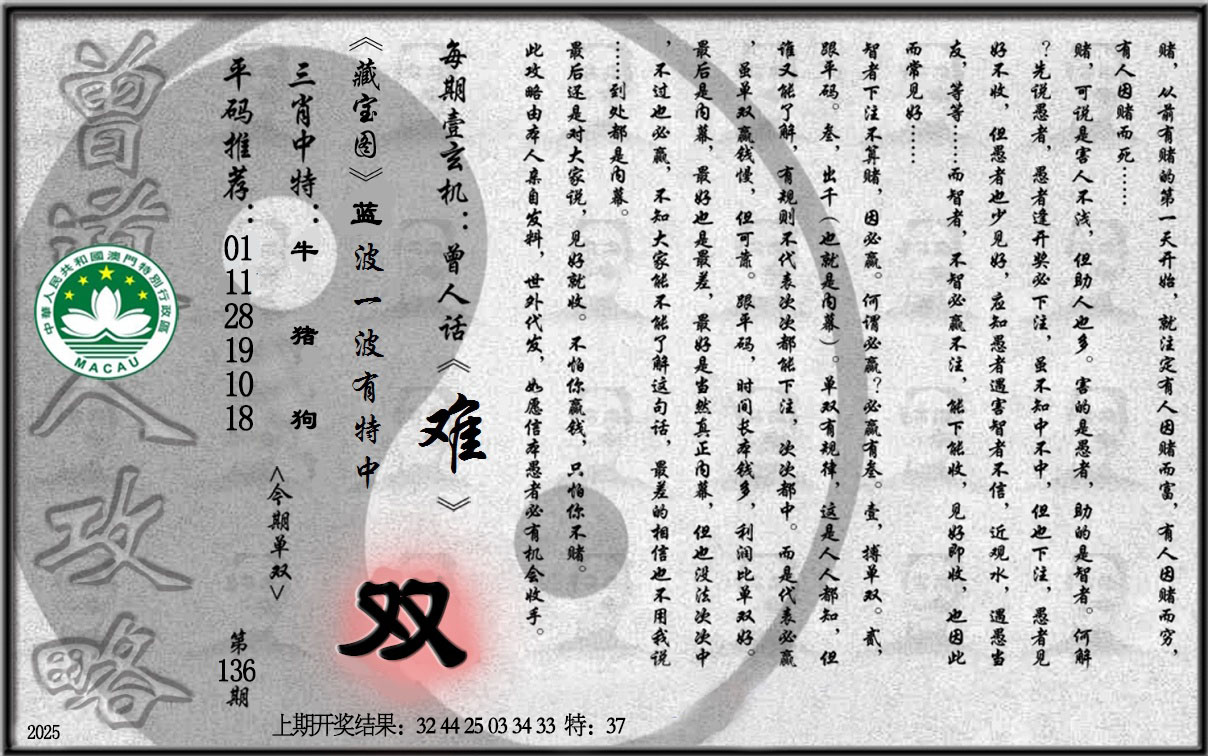 赌，从前有赌的第一天开始，就注定有人因赌而富，有人因赌而穷，
有人因赌而死……
赌，可说是害人不浅，但助人也多。害的是愚者，助的是智者。何解
？先说愚者，愚者逢开奖必下注，虽不知中不中，但也下注，愚者见
好不收，但愚者也少见好，应知愚者遇害智者不信，近观水，遇愚当
友，等等……而智者，不智必赢不注，能下能收，见好即收，也因此
而常见好……
智者下注不算赌，因必赢。何谓必赢？必赢有叁。壹，搏单双。贰，
跟平码。叁，出千（也就是内幕）。单双有规律，这是人人都知，但
谁又能了解，有规则不代表次次都能下注，次次都中。而是代表必赢
，虽单双赢钱慢，但可靠。跟平码，时间长本钱多，利润比单双好。
最后是内幕，最好也是最差，最好是当然真正内幕，但也没法次次中
，不过也必赢，不知大家能不能了解这句话，最差的相信也不用我说
……到处都是内幕。
最后还是对大家说，见好就收。不怕你赢钱，只怕你不赌。
此攻略由本人亲自发料，世外代发，如愿信本愚者必有机会收手。
每期壹玄机：曾人话《难》
《藏宝图》蓝波一波有特中
双
三肖中特：牛 猪 狗
<今期单双>
平码推荐：01 11 28 19 10 18
第136期
曾道人攻略
中華人民共和國澳門特別行政區
MACAU
2025
上期开奖结果：32 44 25 03 34 33 特：37